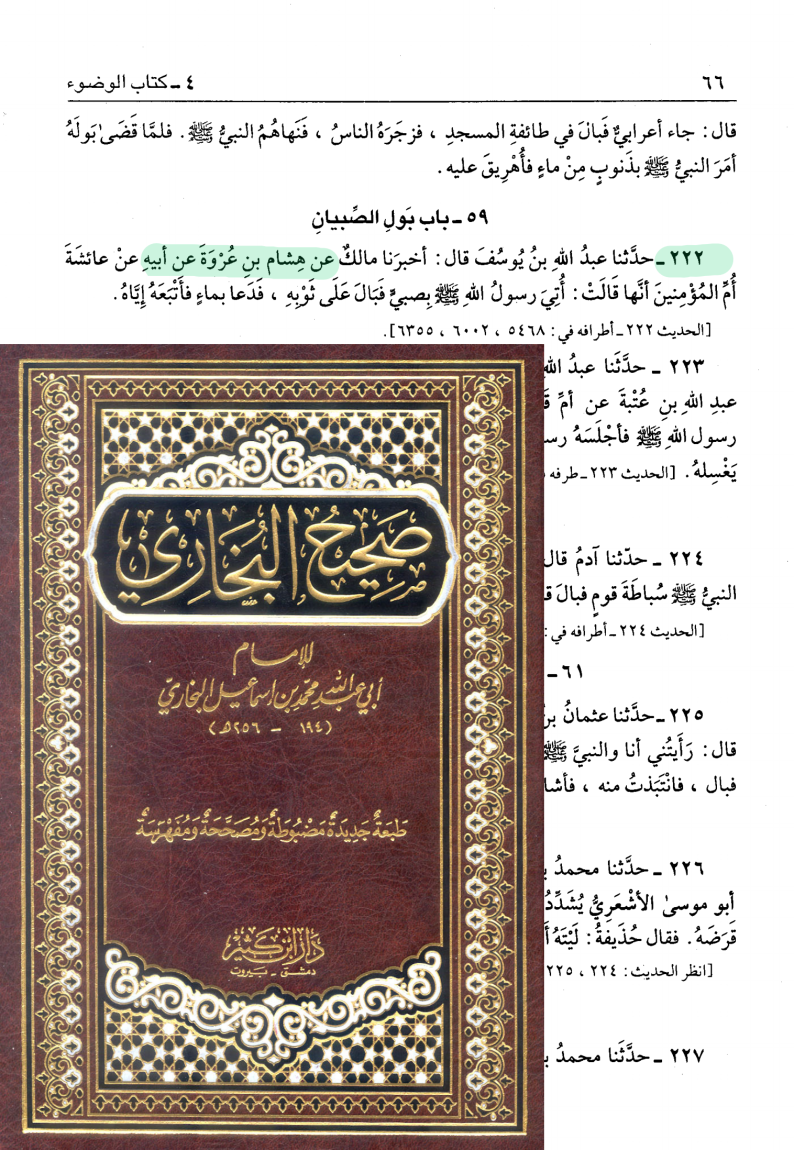 ٦٦
٤ ـ كتاب الوضوء
قال: جاء أعرابيٌّ فَبالَ في طائفةِ المسجدِ ، فزجَرَهُ الناسُ ، فَنَهاهُمُ النبيُّ ﷺ . فلمَّا قَضَىٰ بَولَهُ
أمَرَ النبيُّ ﷺ بذَنوبٍ مِنْ ماءٍ فأُهْرِيقَ عليه .
٥٩ ـ باب بَولِ الصِّبيانِ
٢٢٢ ـ حدَّثنا عبدُ اللهِ بنُ يُوسُفَ قال: أخبرَنا مالكٌ عن هِشام بنِ عُرْوَةَ عن أبيهِ عنْ عائشَةَ
أُمِّ المُؤْمِنينَ أنَّها قالَتْ: أُتِيَ رسولُ اللهِ ﷺ بِصبيٍّ فَبَالَ عَلَى ثَوْبِهِ ، فَدَعا بماءٍ فأَتْبَعَهُ إيَّاهُ.
[الحديث ٢٢٢ ـ أطرافه في: ٥٤٦٨ ، ٦٠٠٢ ، ٦٣٥٥].
٢٢٣ ـ حدَّثَنا عبدُ الله
عبدِ اللهِ بنِ عُتْبةَ عن أمِّ
رسول اللهِ ﷺ فأجْلَسَهُ
يَغْسِلهُ. [الحديث ٢٢٣ ـ طرفه
٢٢٤ ـ حدّثنا آدمُ قال
النبيُّ ﷺ سُباطَةَ قومٍ فبالَ
[الحديث ٢٢٤ ـ أطرافه في:
٦١ ـ
٢٢٥ ـ حدَّثنا عثمانُ
قال: رَأَيتُني أنا والنبيَّ ﷺ
فبال ، فانْتَبَذتُ منه ،
٢٢٦ ـ حدَّثنا محمدُ
أبو موسىٰ الأشْعَرِيُّ يُشَدِّدُ
قَرَضَهُ. فقال حُذَيفةُ: لَيْتَهُ
[انظر الحديث: ٢٢٤ ، ٢٢٥
٢٢٧ ـ حدَّثَنا محمدُ
صَحِيحُ البُخَارِي
للإمام
أبي عبد الله محمد بن إسماعيل البخاري
(١٩٤ - ٢٥٦هـ)
طَبعَةٌ جَديدَةٌ مَضْبُوطَةٌ وَمُصَحَّحَةٌ وَمُفَهْرَسَةٌ
دار ابن كثير
دمشق - بيروت